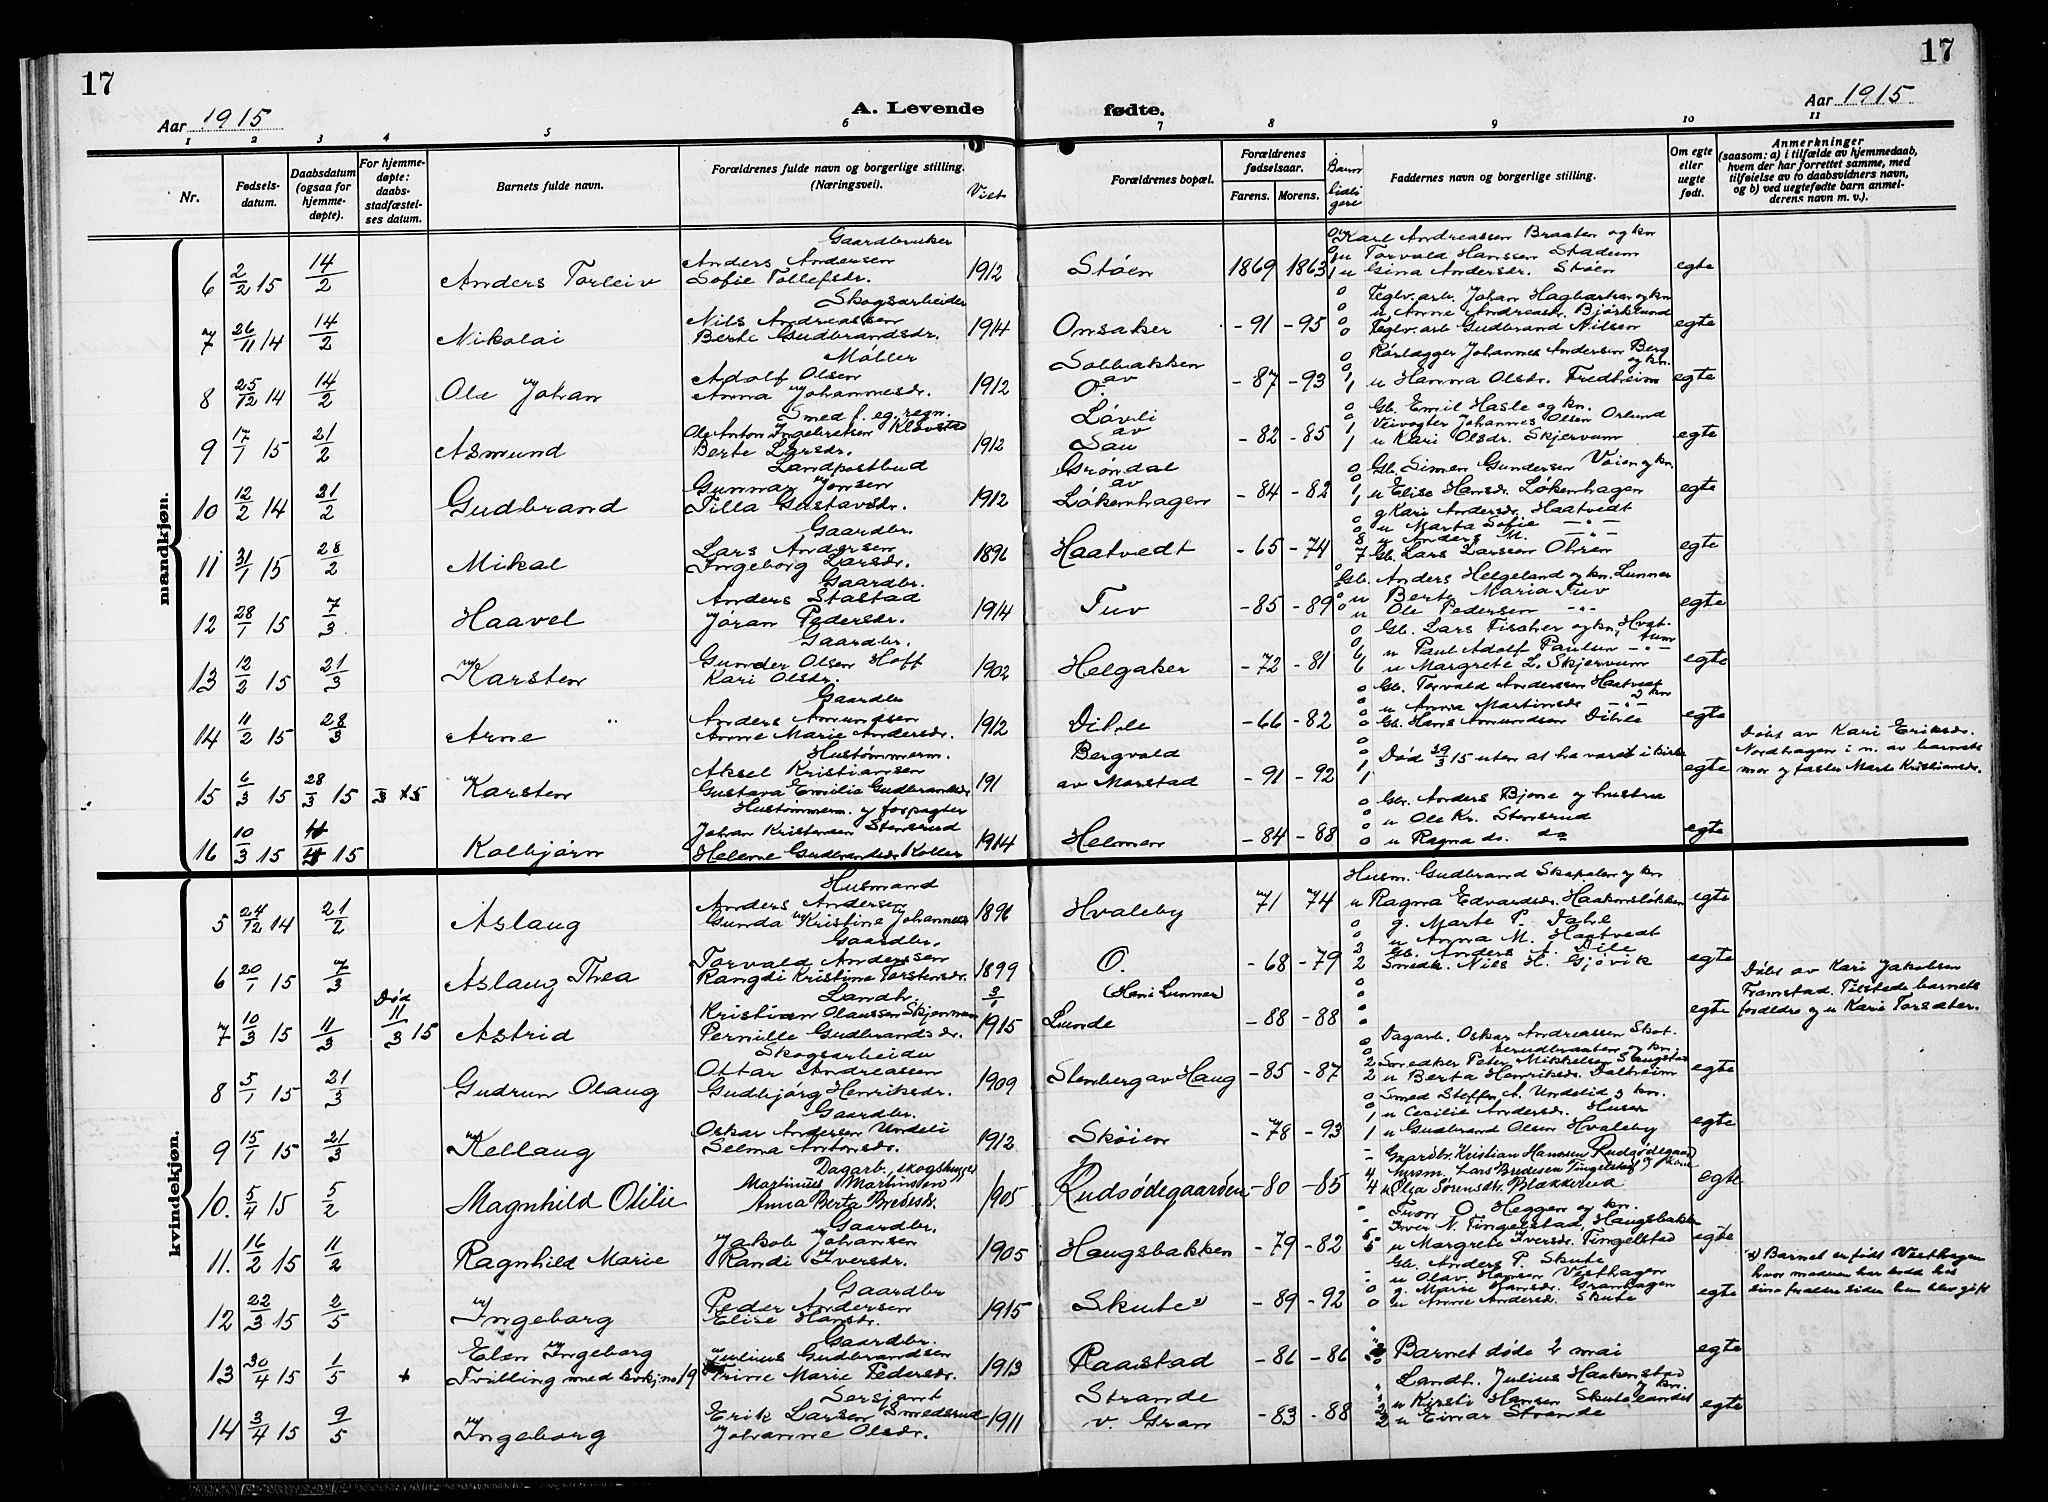 17
17
Aar 1915
A. Levende
fødte.
Aar 1915.
1 2 3 4 5 6 7 8 9 10 11
Nr.
Fødsels-
datum.
Daabsdatum
(ogsaa for
hjemme-
døpte).
For hjemme-
døpte:
daabs-
stadfæstel-
ses datum.
Barnets fulde navn.
Forældrenes fulde navn og borgerlige stilling.
(Næringsvei).
Viet
Forældrenes bopæl.
Forældrenes
fødselsaar.
Farens. Morens.
Faddernes navn og borgerlige stilling.
Om egte
eller
uegte
født.
Anmerkninger
(saasom: a) i tilfælde av hjemmedaab,
hvem der har forrettet samme, med
tilføielse av to daabsvidners navn,
og b) ved uegtefødte barn anmel-
derens navn m. v.).
mandkjøn.
Gaardbruker
6 2/2 15 14/2 Anders Torleiv Anders Andersen
Sofie Tollefsdr. 1912 Støen 1869 1863 Karl Andreassen Braaten og kn
u Torvald Hanssen Stadum
u Gina Andersdr. Støen egte
Skogsarbeider
7 26/11 14 14/2 Nikolai Nils Andreassen
Berte Gudbrandsdr. 1914 Onsaker -91 -95 Teglv. arb. Johan Hagbartsen og kn
u Anne Andreasdr. Bjørklund
Teglv. arb. Gudbrand Nilsen egte
Møller
8 25/12 14 14/2 Ole Johan Adolf Olsen
Anna Johannesdr. 1912 Solbakken
av
O. -87 -93 Rørlægger Johannes Andersen Berg
og kn.
u Hanna Olsdr. Fredheim egte
Smed f. eg. regn.
9 17/1 15 21/2 Asmund Ole Anton Ingebretsen Klovstad
Berte Larsdr. 1912 Løvli
av
Sau -82 -85 Gb. Emil Hasle og kn.
Veivogter Johannes Olsen Orlund
u Kari Olsdr. Skjervum egte
Landpostbud
10 12/2 14 21/2 Gudbrand Gunnar Jonsen
Tilla Gustavsdr. 1912 Grøndal
av
Løkenhagen -84 -82 Gb. Simen Gundersen Vøien og kn.
u Elise Hansdr. Løkenhagen egte
Gaardbr.
11 31/1 15 28/2 Mikal Lars Andersen
Ingeborg Larsdr. 1896 Haatvedt -65 -74 g Kari Andersdr. Haatvedt
u Marta Sofie -"-
u Anders M. -"-
Gb. Lars Larssen Ohren egte
Gaardbr.
12 28/1 15 7/3 Haavel Anders Stastad
Jøran Pedersdr. 1914 Tuv -85 -89 Gb. Anders Helgeland og kn. Lunner
u Berte Maria Tuv
u Ole Pedersen -"- egte
Gaardbr.
13 12/2 15 21/3 Karsten Gunder Olsen Hoff
Kari Olsdr. 1902 Helgaker -72 -81 Gb. Lars Fischer og kn, Hvat-
tum
u Paul Adolf Paulsen -"-
u Margrete L. Skjervum egte
Gaardbr
14 11/2 15 28/3 Arne Anders Amundsen
Anne Marie Andersdr. 1912 Dihle -66 -82 Gb. Torvald Anderssen Haatvedt
g kn
u Anna Martinsdr -"-
Gb. Hans Amundsen Dihle egte
Hustømmerm.
15 6/3 15 28/3 15 Karsten Aksel Kristiansen
Gustava Emilie Gudbrandsdr 191 Bergvold
av Morstad -91 -92 Død 29/3 15 uten at ha været i kirke egte
Døbt av Kari Eriksdr.
Nordhagen i n. av barnets
mor og faster Marte Kristiansdr.
Hustømmerm. og forpagter
16 10/3 15 Kolbjørn Johan Kristensen Stensrud
Helene Gudbrandsdr Koller 1914 Helmen -84 -88 Gbr. Anders Bjone og hustru
u Ole Kr. Stensrud
u Ragna do. do egte
kvindekjøn.
Husmand
5 24/12 14 21/2 Aslaug Anders Andersen
Gunda Kristine Johannesdr 1896 Hvaleby 71 74 Husm. Gudbrand Skapalen og kn
u Ragna Edvardsdr. Haakenslokken egte
Gaardbr.
6 20/1 15 7/3 Aslaug Thea Torvald Anderssen
Rangdi Kristine Torstensdr. 1899 O. -68 -79 g. Marte P. Dahl
u Anna M. Haatvedt
Gb. Anders A. Dile
Smedk. Nils H. Gjøvik egte
Landh.
7 10/3 15 11/3 Død
11/3 15 Astrid Kristian Olaussen Skjennum
Pernille Gudbrandsdr. 3/1
1915 Lunde (Hans Lunner) -88 -88 egte
Døbt av Kari Jakobsen
Framstad. Tilstede barnets
foreldre og u Kari Torsæter.
Skogsarbeider
8 5/1 15 21/3 Gudrun Olaug Ottar Andreassen
Gudbjørg Henriksdr. 1909 Stenberg av Haug -85 -87 Dagarb. Oskar Andreassen Skot-
terudbraaten og kn.
Snedker Peter Mikkelsen Slaugstad
u Berta Henriksdr. Dalheim egte
Gaardbr.
9 15/1 15 21/3 Kellaug Oskar Andersen Undeli
Selma Antonsdr. 1912 Skøien -78 -93 Smed Steffen A. Undelid og kn.
u Cecilie Andersdr. Huser
u Gudbrand Olsen Hvaleby egte
Dagarb., skogshugger
10. 5/4 15 5/2 Magnhild Otilie Martinus Martinsen
Anna Berta Bredesdr 1905 Rudsødegaarden -80 -85 Gaardbr. Kristian Hanssen Rudsødegaard
husm. Lars Bredesen Tingelstad og kone
u Olga Sørensdtr. Blækkerud egte
Gaardbr.
11. 16/2 15 11/2 Ragnhild Marie Jakob Johansen
Randi Iversdr. 1905 Haugsbakken -79 -82 Tron O. Heggen og kn.
Iver N. Tingelstad, Haugsbakken
u Margrete Iversdr. Tingelstad egte
Gaardbr
12 22/3 15 2/5 Ingeborg Peder Andersen
Elise Hansdr. 1915 Skute x) -89 -92 Gb. Anders P. Skute
u Olav Hansen Vesthagen
g. Marie Hansdr. Granhagen
u Anne Andersdr. Skute egte
x) Barnet er født Vesthagen
hvor moderen har bodd hos
sine foreldre siden hun blev gift
Gaardbr.
13 30/4 15 1/5 + Elen Ingeborg
Tvilling med mkj. no 19 Julius Gudbrandsen
Trine Marie Pedersdr. 1913 Raastad -86 -86 Barnet døde 2 mai egte
Sersjant
14 3/4 15 9/5 Ingeborg Erik Larsen Smedsrud
Johanne Olsdr. 1911 Strande
v. Gran -83 -88 Landh. Julius Haakenstad
og kn.
u Kirsti Hansen Skutelandet
u Einar Strande egte